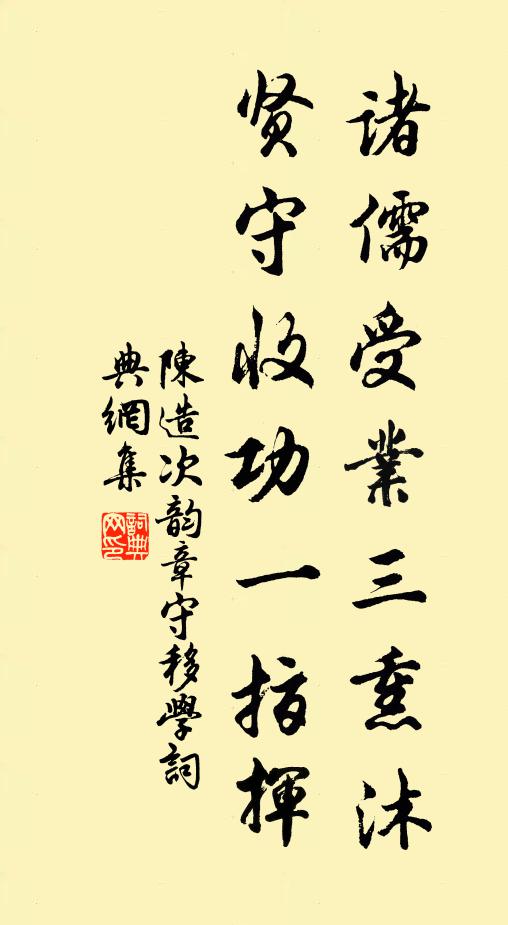 諸儒受業三熏沐
贤守收功一指揮
陳造次韵章守移學詞
典網集
詞典網印